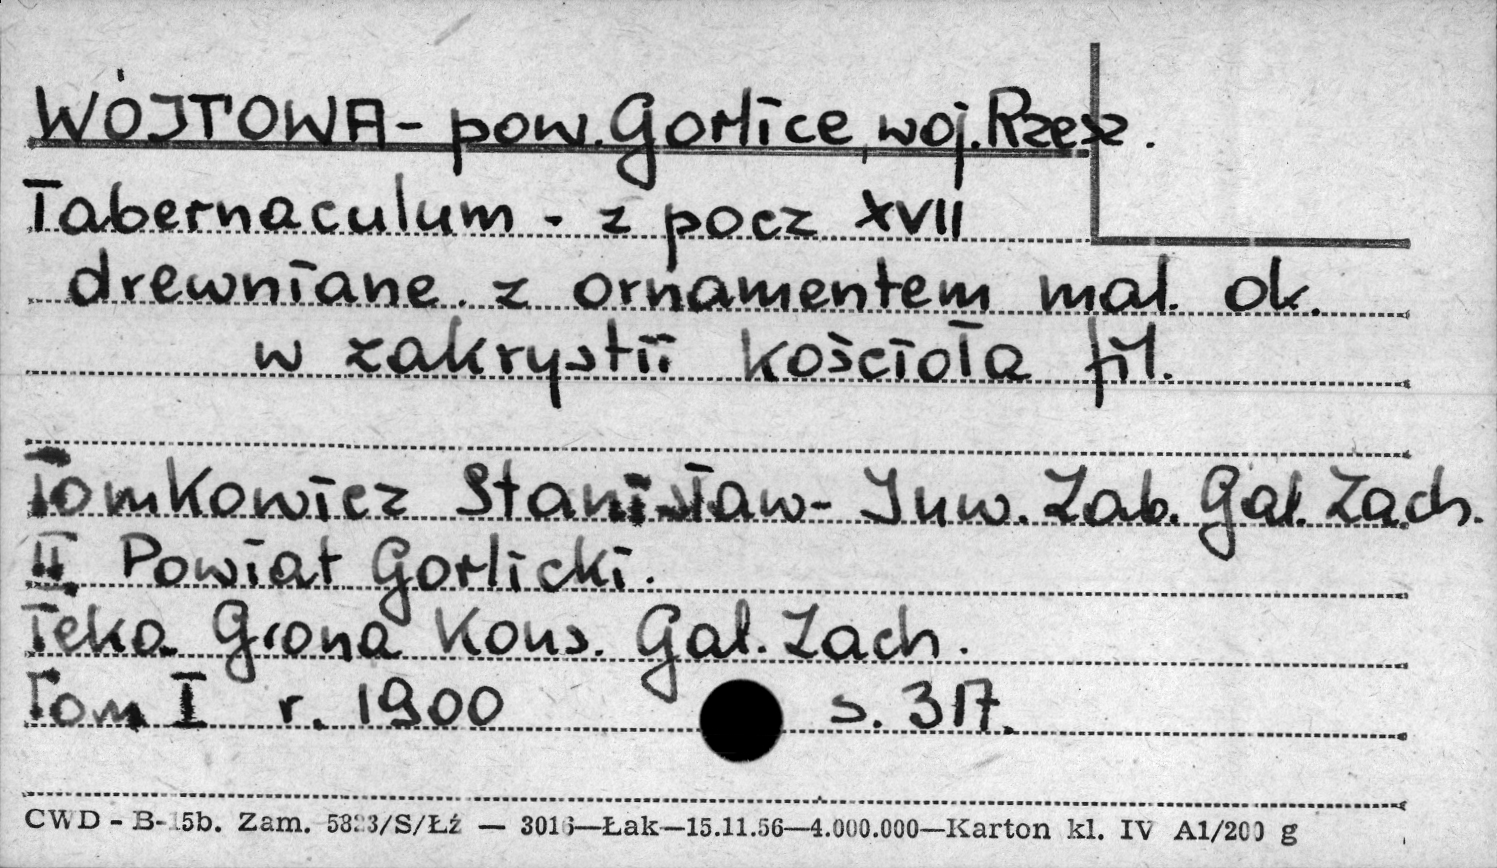 WÓJTOWA - pow. Gorlice, woj. Rzesz.
Tabernaculum - z pocz XVII
drewniane. z ornamentem mal. ok.
w zakrystii kościoła fil.
Tomkowicz Stanisław - Inw. Zab. Gal. Zach.
II. Powiat Gorlicki.
Teka Grona Kons. Gal. Zach.
Tom I r. 1900 s. 317.
CWD - B- 5b. Zam. /S/Łź — —Łak—15.11.56—4.000.000—Karton kl. IV A1/200 g